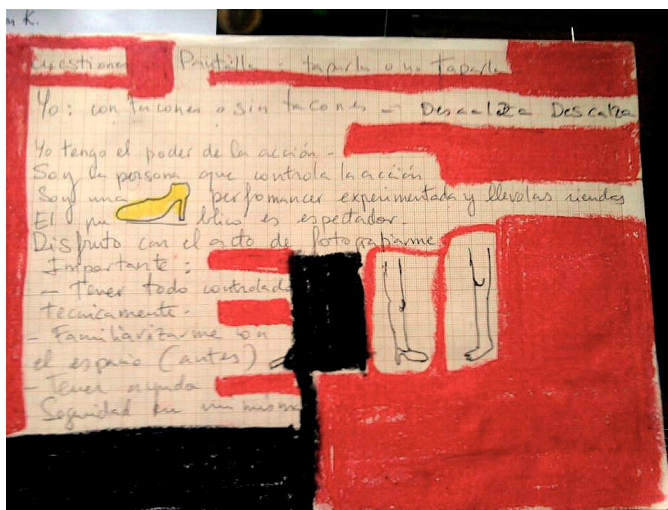 m K.
Cuestiones Pantalla : taparla o no taparla
Yo : con tacones o sin tacones – Descalza Descalza
Yo tengo el poder de la acción.-
Soy la persona que controla la acción
Soy una perfomancer experimentada y llevo las riendas
El pu blico es espectador.
Disfruto con el acto de fotografiarme
Importante :
– Tener todo controlado
tecnicamente.
- Familiarizarme con
el espacio (antes)
- Tener ayuda
- Seguridad en mi misma